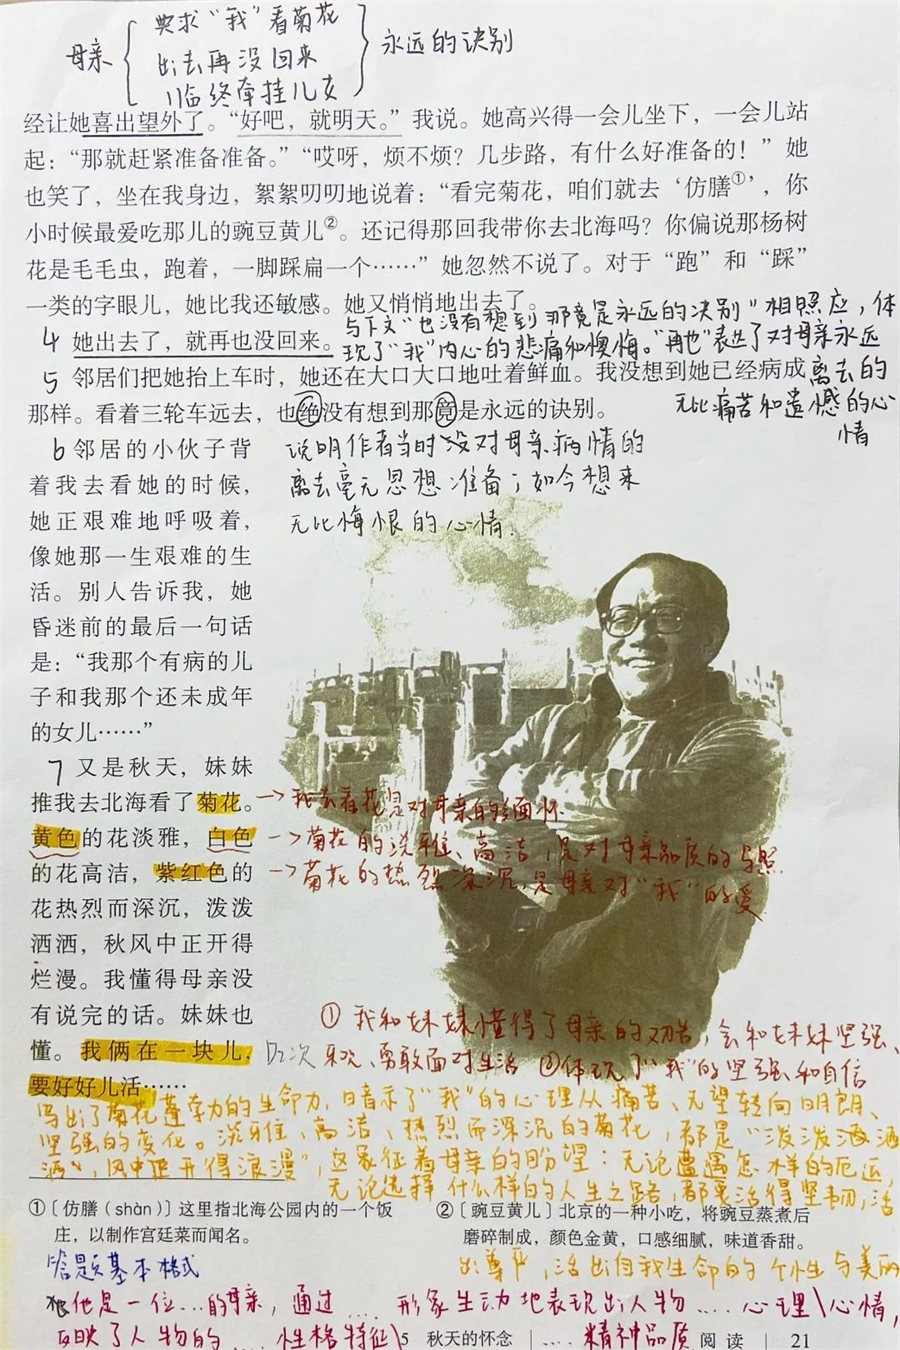 母亲
要求“我”看菊花
出去再没回来
临终牵挂儿女
永远的诀别
经让她喜出望外了。“好吧，就明天。”我说。她高兴得一会儿坐下，一会儿站
起：“那就赶紧准备准备。”“哎呀，烦不烦？几步路，有什么好准备的！”她
也笑了，坐在我身边，絮絮叨叨地说着：“看完菊花，咱们就去‘仿膳①’，你
小时候最爱吃那儿的豌豆黄儿②。还记得那回我带你去北海吗？你偏说那杨树
花是毛毛虫，跑着，一脚踩扁一个……”她忽然不说了。对于“跑”和“踩”
一类的字眼儿，她比我还敏感。她又悄悄地出去了。
4 她出去了，就再也没回来。
与下文“也没有想到那竟是永远的决别”相照应，体
现了“我”内心的悲痛和懊悔。“再也”表达了对母亲永远
离去的
无比痛苦和遗憾的心
情
5 邻居们把她抬上车时，她还在大口大口地吐着鲜血。我没想到她已经病成
那样。看着三轮车远去，也绝没有想到那竟是永远的诀别。
说明作者当时没对母亲病情的
离去毫无思想准备；如今想来
无比悔恨的心情．
6 邻居的小伙子背
着我去看她的时候，
她正艰难地呼吸着，
像她那一生艰难的生
活。别人告诉我，她
昏迷前的最后一句话
是：“我那个有病的儿
子和我那个还未成年
的女儿……”
7 又是秋天，妹妹
推我去北海看了菊花。
→我去看花是对母亲的缅怀
黄色的花淡雅，白色
→菊花的淡雅、高洁，是对母亲品质的写照
的花高洁，紫红色的
→菊花的热烈深沉，是母亲对“我”的爱
花热烈而深沉，泼泼
洒洒，秋风中正开得
烂漫。我懂得母亲没
有说完的话。妹妹也
懂。我俩在一块儿，
要好好儿活……
①我和妹妹懂得了母亲的劝告，会和妹妹坚强、
乐观、勇敢面对生活 ②体现了“我”的坚强和自信
写出了菊花蓬勃的生命力，暗示了“我”的心理从痛苦、无望转向明朗、
坚强的变化。淡雅、高洁、热烈而深沉的菊花，都是“泼泼洒洒
洒，风中正开得浪漫”，这象征着母亲的盼望：无论遭遇怎样的厄运，
无论选择什么样的人生之路，都要活得坚韧，活
出尊严，活出自我生命的个性与美丽
①〔仿膳（shàn）〕这里指北海公园内的一个饭
庄，以制作宫廷菜而闻名。
②〔豌豆黄儿〕北京的一种小吃，将豌豆蒸煮后
磨碎制成，颜色金黄，口感细腻，味道香甜。
答题基本格式
他是一位…的母亲，通过…形象生动地表现出人物…心理\心情，
反映了人物的…性格特征\…精神品质
5 秋天的怀念 | 阅读 | 21